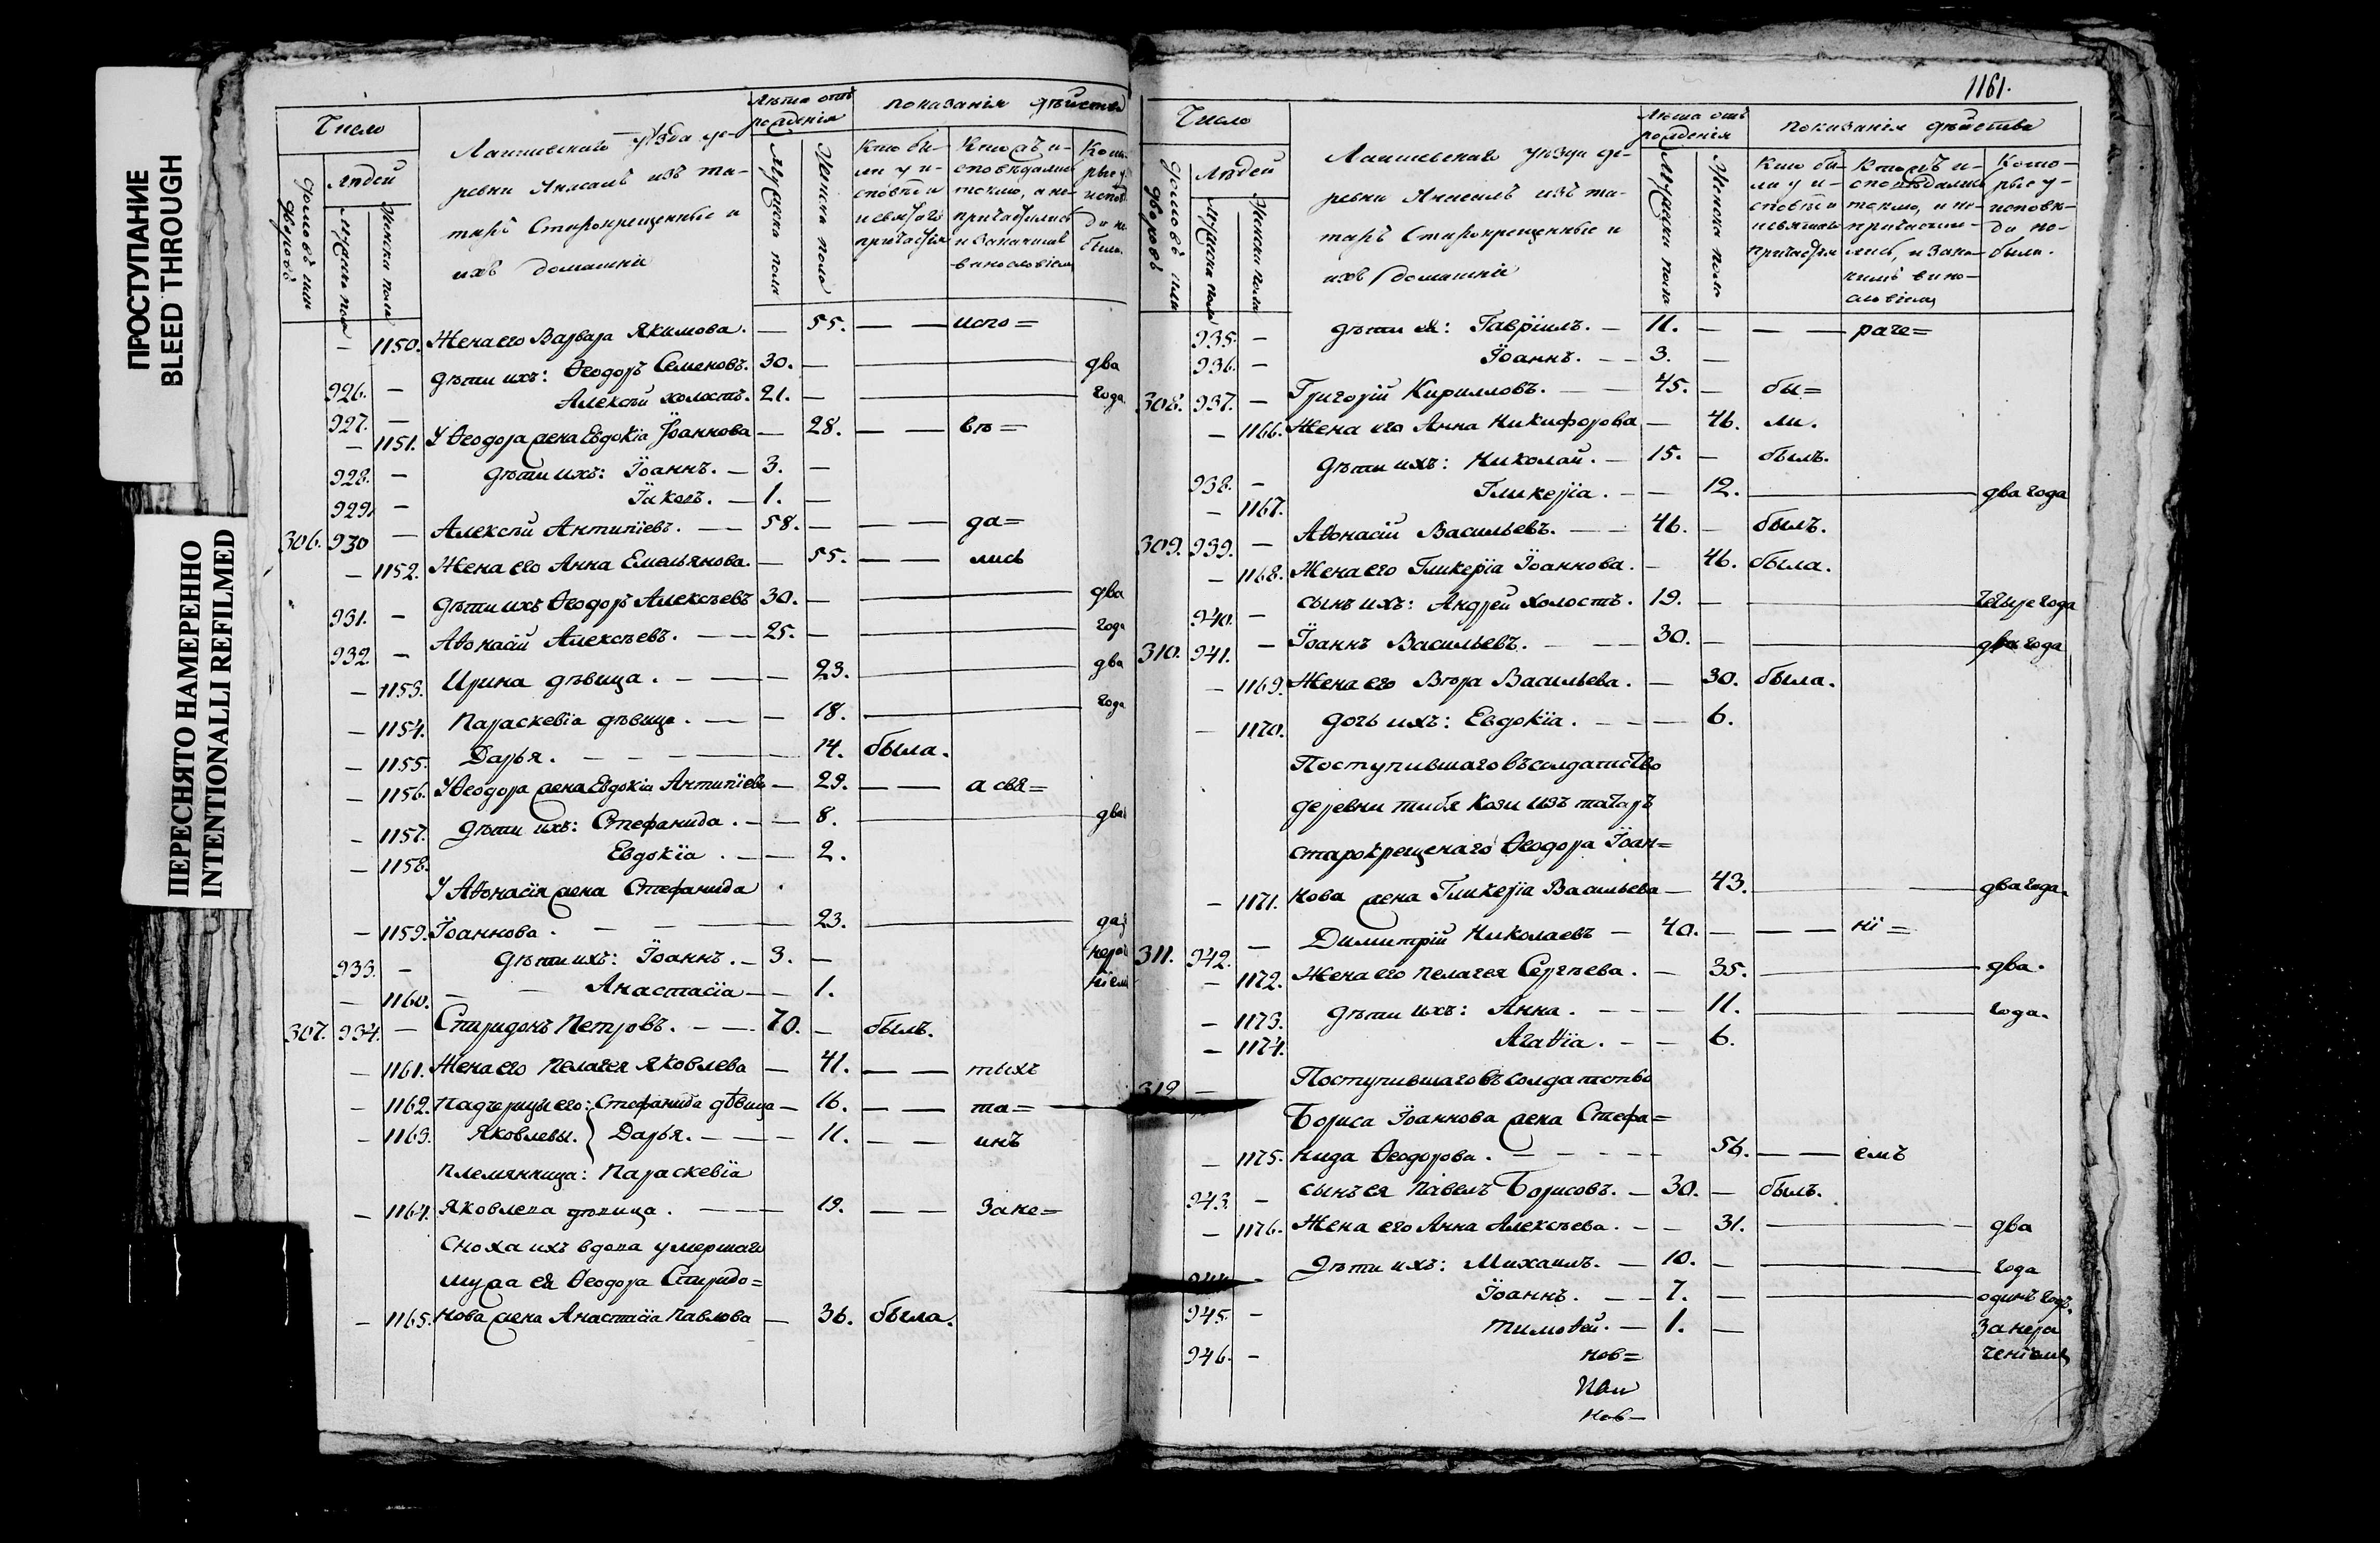 ПРОСТУПАНИЕ
BLEED THROUGH
ПЕРЕСНЯТО НАМЕРЕННО
INTENTIONALLI REFILMED
Число
Лѣта отъ рожденія
показанія дѣйства
Лаишевскаго уѣзда де-
ревни Янасалъ изъ та-
таръ Старокрещенные и
ихъ домашніе
домовъ или дворовъ
людей
Мужеска пола
Женска пола
Мужеска пола
Женска пола
Кто бы-
ли у и-
сповѣди
и святаго
причастія
Кто жъ и-
сповѣдались
токмо, а не
причастились
и за какимъ
винословіем
1150. Жена его Варвара Якимова. — 55. — — испо=
926. — дѣти ихъ: Ѳеодоръ Семеновъ. 30. — два
927. — Алексѣй холостъ. 21. — года
— 1151. У Ѳеодора жена Евдокіа Іоаннова — 28. — — въ=
928. — дѣти ихъ: Іоаннъ. — 3. —
929. — Іаковъ. — 1. —
306. 930 — Алексѣй Антипіевъ. — 58. — — — да=
— 1152. Жена его Анна Емельянова. — 55. — — лись
931. — дѣти ихъ Ѳеодоръ Алексѣевъ 30. — два
932 — Аѳонасій Алексѣевъ. — 25. — года
— 1153. Ирина дѣвица. — 23. два
— 1154. Параскевіа дѣвица. — 18. года
— 1155. Дарья. — 14. была.
— 1156. У Ѳеодора жена Евдокіа Антипіева — 29. — — а свя=
— 1157. дѣти ихъ: Стефанида. — 8. два
— 1158. Евдокіа. — 2.
У Аѳонасія жена Стефанида
— 1159. Іоаннова. — 23.
933. — дѣти ихъ: Іоаннъ. — 3. —
— 1160. — Анастасіа — 1.
307. 934. — Спиридонъ Петровъ. — 70. — былъ.
— 1161. Жена его Пелагея Яковлева — 41. — — тыхъ
— 1162. Падчерицы его: Стефанида дѣвица — 16. — — та=
— 1163. Яковлевы. } Дарья. — 11. — — инъ
племянница: Параскевіа
— 1164. Яковлева дѣвица. — 19. — — Зане=
Сноха ихъ вдова умершаго
мужа ея Ѳеодора Спиридо=
— 1165. нова жена Анастасіа Павлова — 36. была.
1161.
Число
Лѣта отъ рожденія
показанія дѣйства
Лаишевскаго уѣзда де-
ревни Янасалъ изъ та-
таръ Старокрещенные и
ихъ домашніе
домовъ или дворовъ
людей
Мужеска пола
Женска пола
Мужеска пола
Женска пола
Кто бы-
ли у и-
сповѣди
и святаго
причастія
Кто жъ и-
сповѣдались
токмо, а не
причасти-
лись, и зака-
кимъ вино-
словіем
Кото-
рые у-
исповѣ-
ди не-
были.
935. — дѣти ея: Гавріилъ. — 11. — — — раче=
936. — Іоаннъ. — 3. —
308. 937. — Григорій Кирилловъ. — 45. — бы=
— 1166. Жена его Анна Никифорова — 46. ли.
938. — дѣти ихъ: Николай. — 15. — былъ.
— 1167. Гликеріа. — 12. два года
309. 939. — Аѳонасій Васильевъ. — 46. — былъ.
— 1168. Жена его Гликеріа Іоаннова. — 46. была.
940. — сынъ ихъ: Андрей холостъ. 19. — четыре года
310. 941. — Іоаннъ Васильевъ. — 30. — два года
— 1169. Жена его Вѣра Васильева. — 30. была.
— 1170. дочь ихъ: Евдокіа. — 6.
Поступившаго въ солдатство
деревни тибя Кози изъ татаръ
старокрещенаго Ѳеодора Іоан=
— 1171. нова жена Гликеріа Васильева — 43. два года.
311. 942. — Димитрій Николаевъ — 40. — — — ні=
— 1172. Жена его пелагея Сергѣева. — 35. два.
— 1173. дѣти ихъ: Анна. — 11. года.
— 1174. Агаѳіа. — 6.
312 — Поступившаго въ солдатство
Бориса Іоаннова жена Стефа=
— 1175. нида Ѳеодорова. — 56. — — емъ
943. — сынъ ея Павелъ Борисовъ. — 30. — былъ.
— 1176. Жена его Анна Алексѣева. — 31. два
944. — дѣти ихъ: Михаилъ. — 10. — года
945. — Іоаннъ. — 7. — одинъ годъ.
946. — Тимоѳей. — 1. — За нера
ченіемъ
нов=
нов—